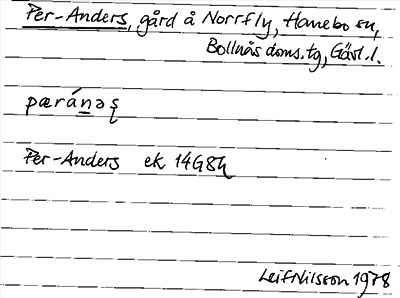 Per-Anders, gård å Norrfly, Hanebo sn,
Bollnäs doms. tg, Gävl. l.
pæránəş
Per-Anders ek 14G8h
Leif Nilsson 1978